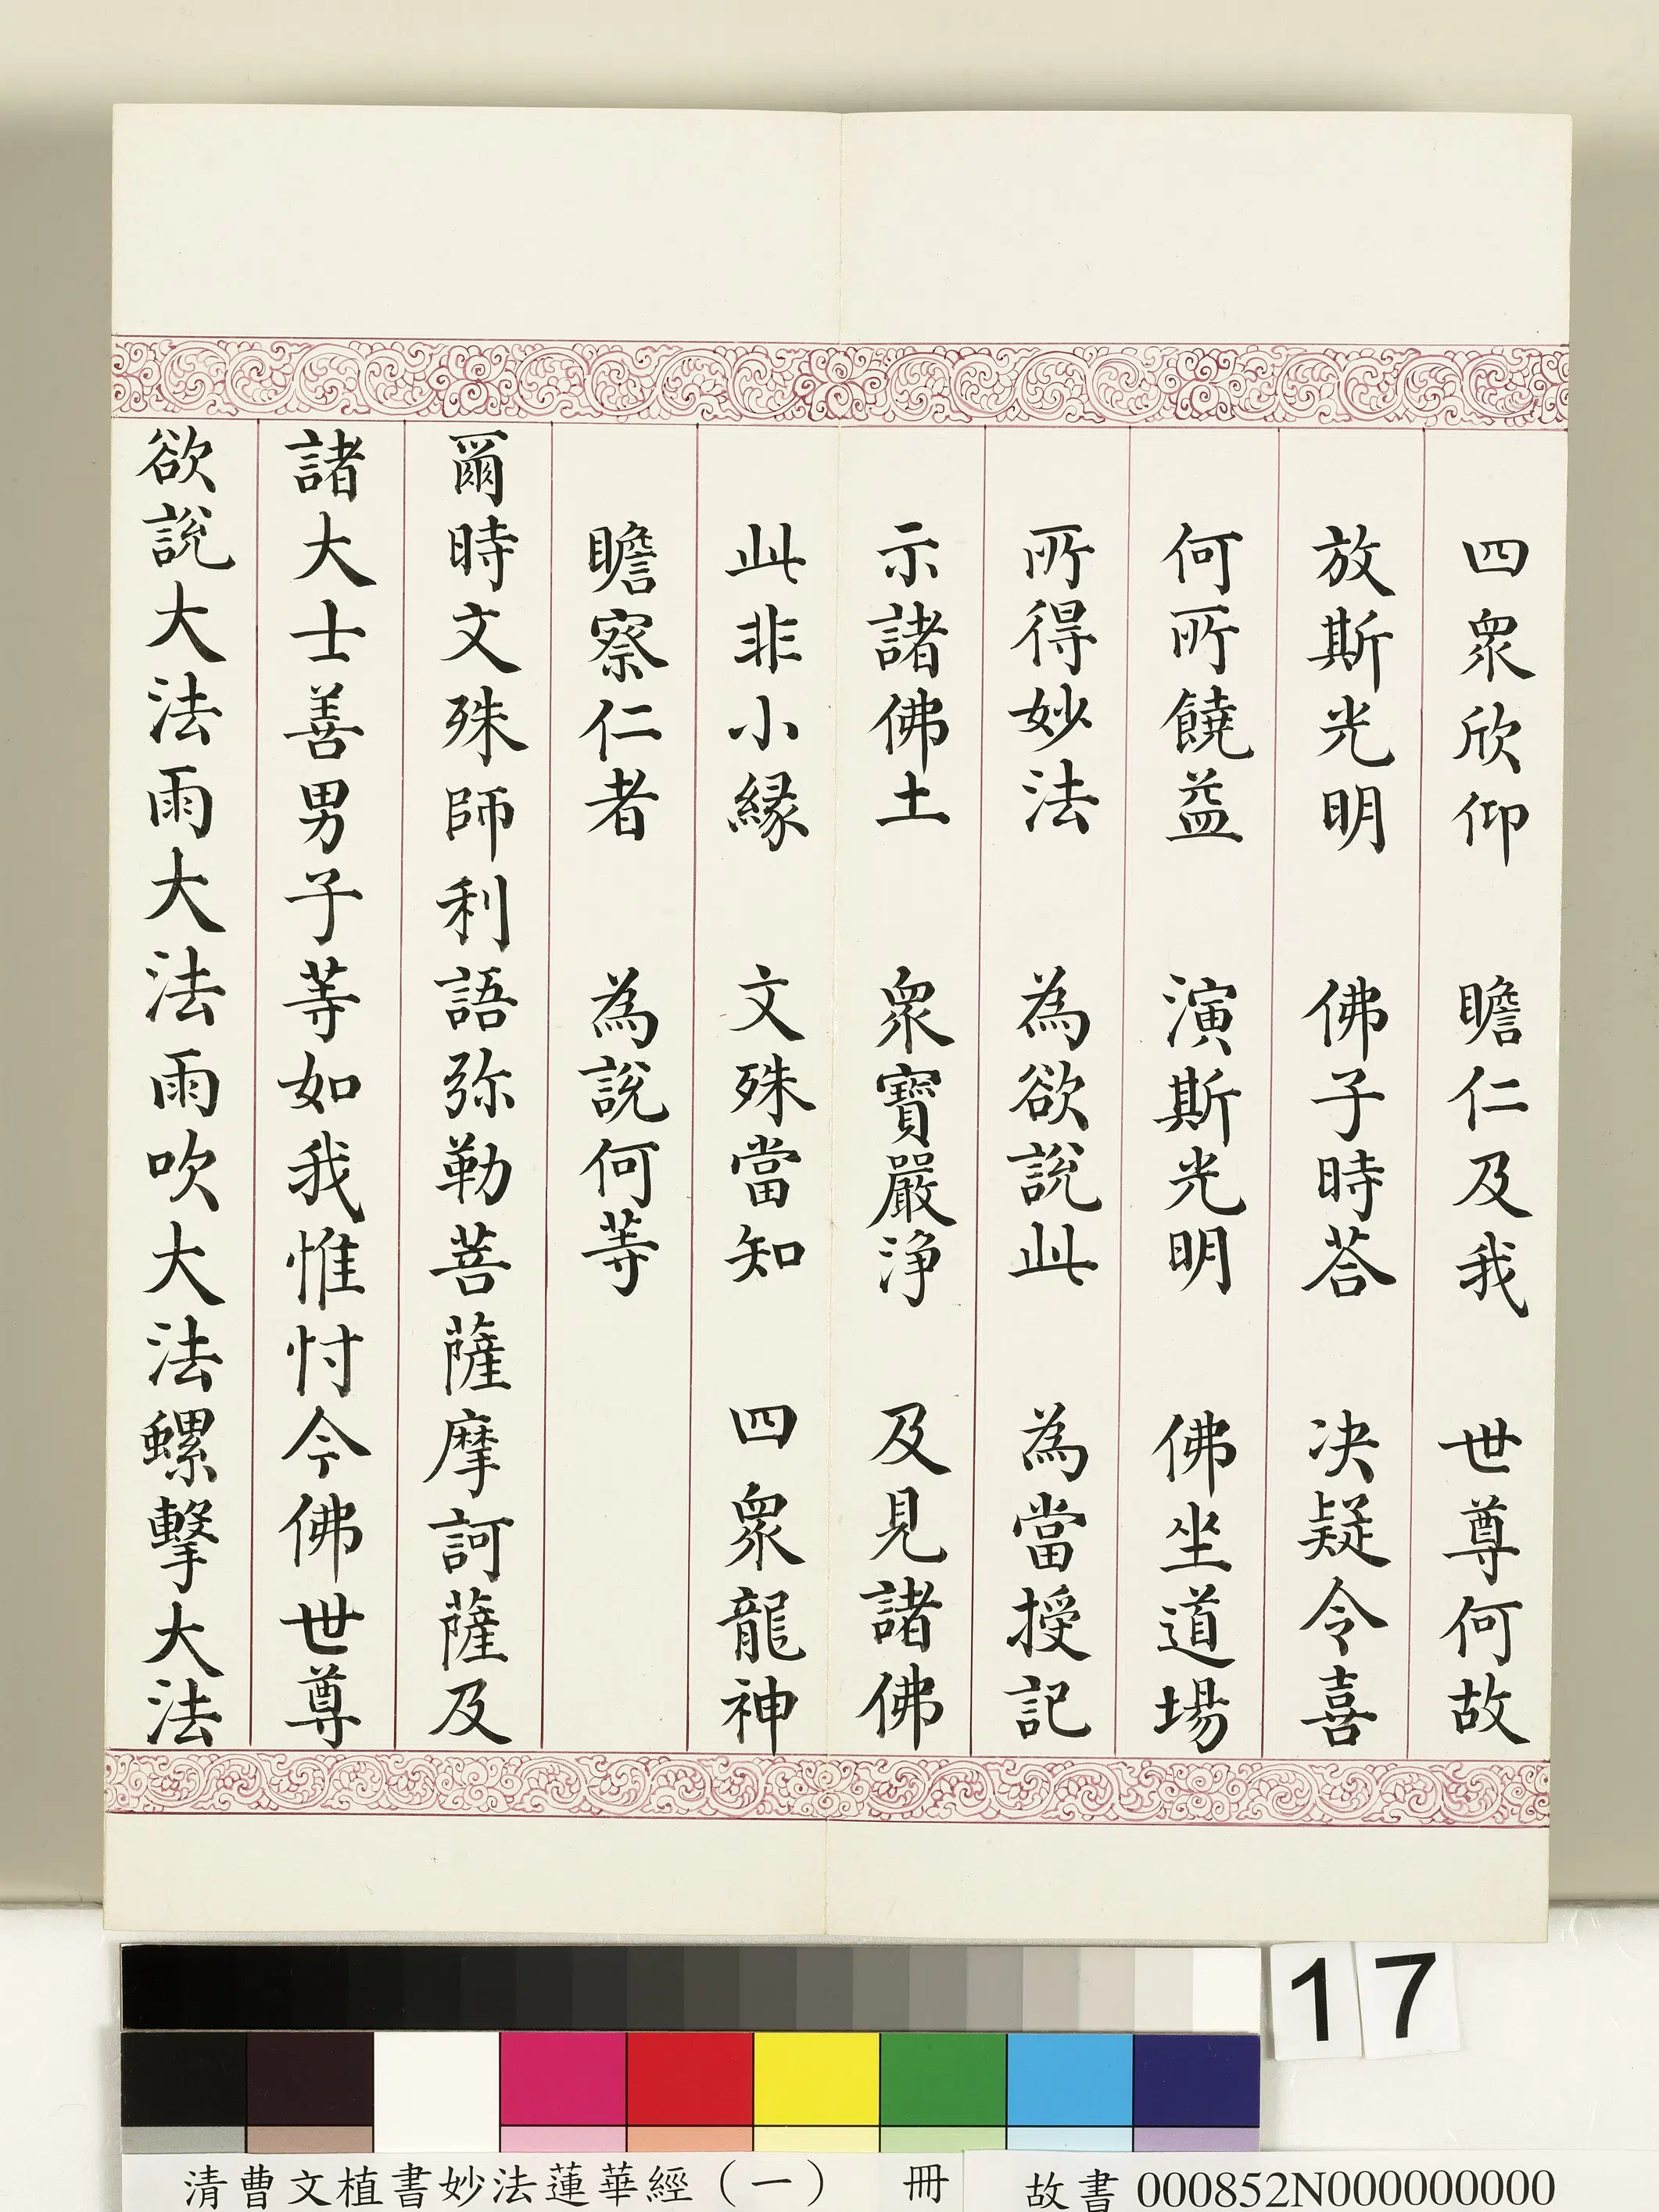 四衆欣仰　瞻仁及我　世尊何故
放斯光明　佛子時荅　决疑令喜
何所饒益　演斯光明　佛坐道場
所得妙法　為欲說此　為當授記
示諸佛土　衆寶嚴淨　及見諸佛
此非小緣　文殊當知　四衆龍神
瞻察仁者　為說何等
爾時文殊師利語弥勒菩薩摩訶薩及
諸大士善男子等如我惟忖今佛世尊
欲說大法雨大法雨吹大法螺擊大法
17
清曹文植書妙法蓮華經（一）　冊
故書000852N000000000